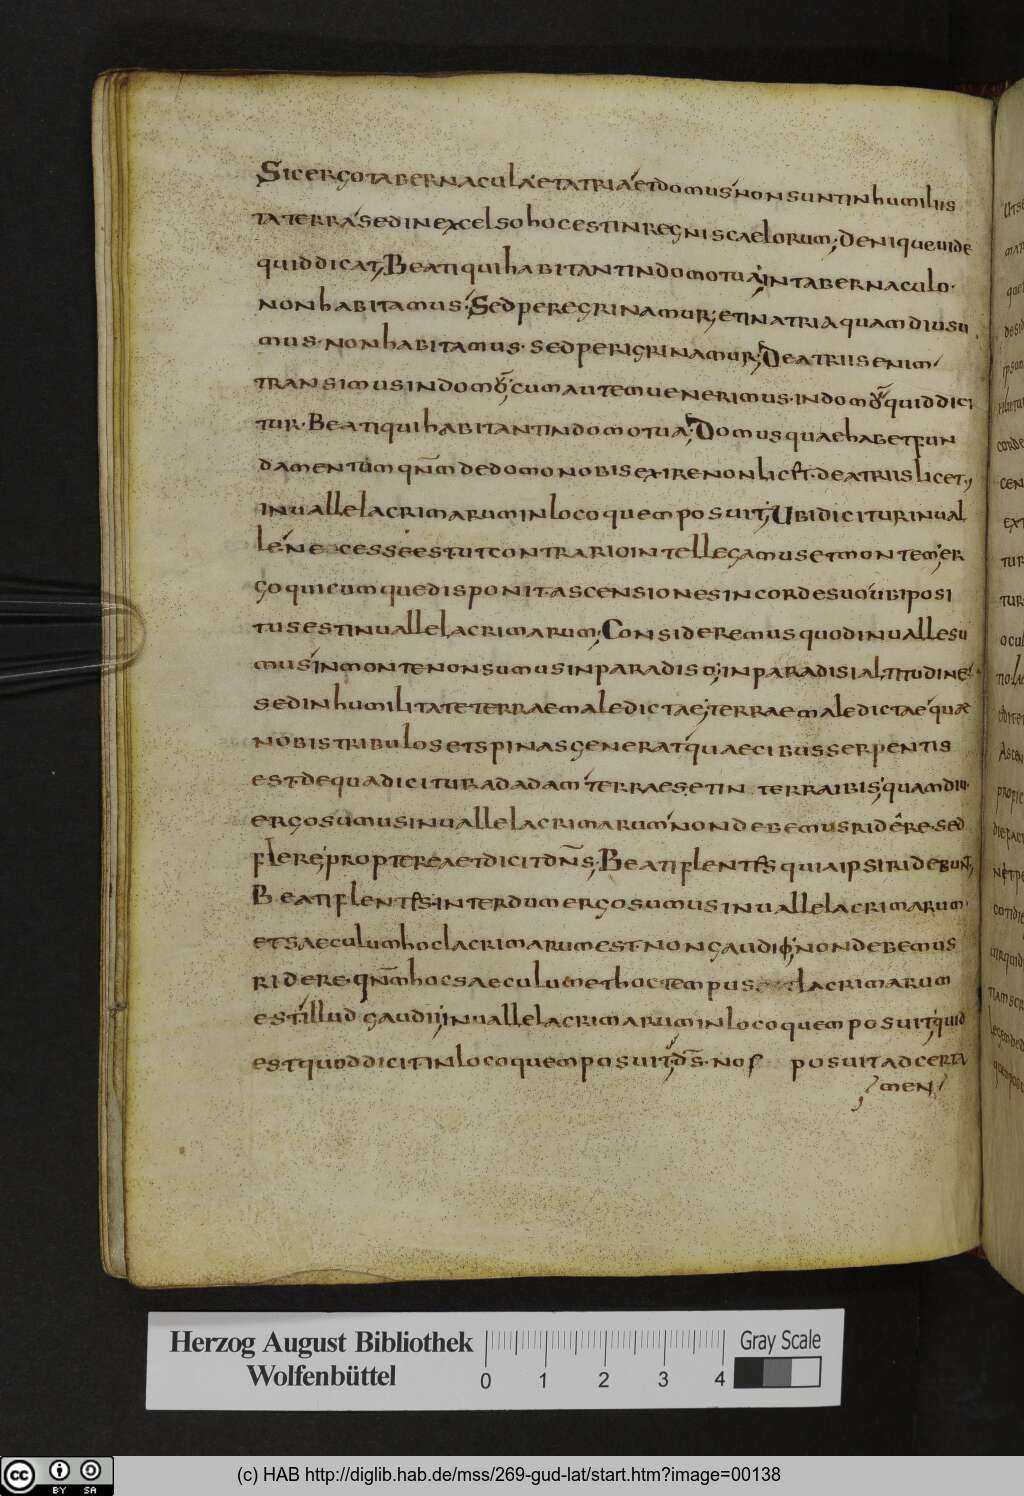 Sic ergo tabernacula et atria et domus non sunt in humiliis
ta terra sed in excelso hoc est in regnis caelorum; Denique uide
quid dicat; Beati qui habitant in domo tua; in tabernaculo·
non habitamus· Sed peregrinamur; et in atria quamdiu su
mus· non habitamus· sed perigrinamur; De atriis enim
transimus in domū; cum autem uenerimus· in domū quid dici
tur· Beati qui habitant in domo tua; Domus quae habet fun
damentum qnm de domo nobis exire non licet· de atriis licet·,
in ualle lacrimarum in loco quem posuit; Ubi dicitur in ual
le necesse est ut contrario intellegamus et montem; er
go quicumque disponit ascensiones in corde suo ubi posi
tus est in ualle lacrimarum; Consideremus quod in ualle su
mus in monte non sumus in paradiso; in paradisi altitudine
sed in humilitate terrae maledictae; terrae maledictae quae
nobis tribulos et spinas generat quae cibus serpentis
est· de qua dicitur ad adam terra es et in terra ibis; quamdiu
ergo sumus in ualle lacrimarum non debemus ridere· sed
flere; propterea et dicit dns; Beati flentes quia ipsi ridebunt;
Beati flentes· interdum ergo sumus in ualle lacrimarum·
et saeculum hoc lacrimarum est· non gaudii; non debemus
ridere· qnm hoc saeculum et hoc tempus lacrimarum
est illud gaudii; in ualle lacrimarum in loco quem posuit; quid
est quod dicit in loco quem posuit; ds· nos posuit ad certa
men
Herzog August Bibliothek
Wolfenbüttel
0 1 2 3 4
Gray Scale
cc BY SA
(c) HAB http://diglib.hab.de/mss/269-gud-lat/start.htm?image=00138